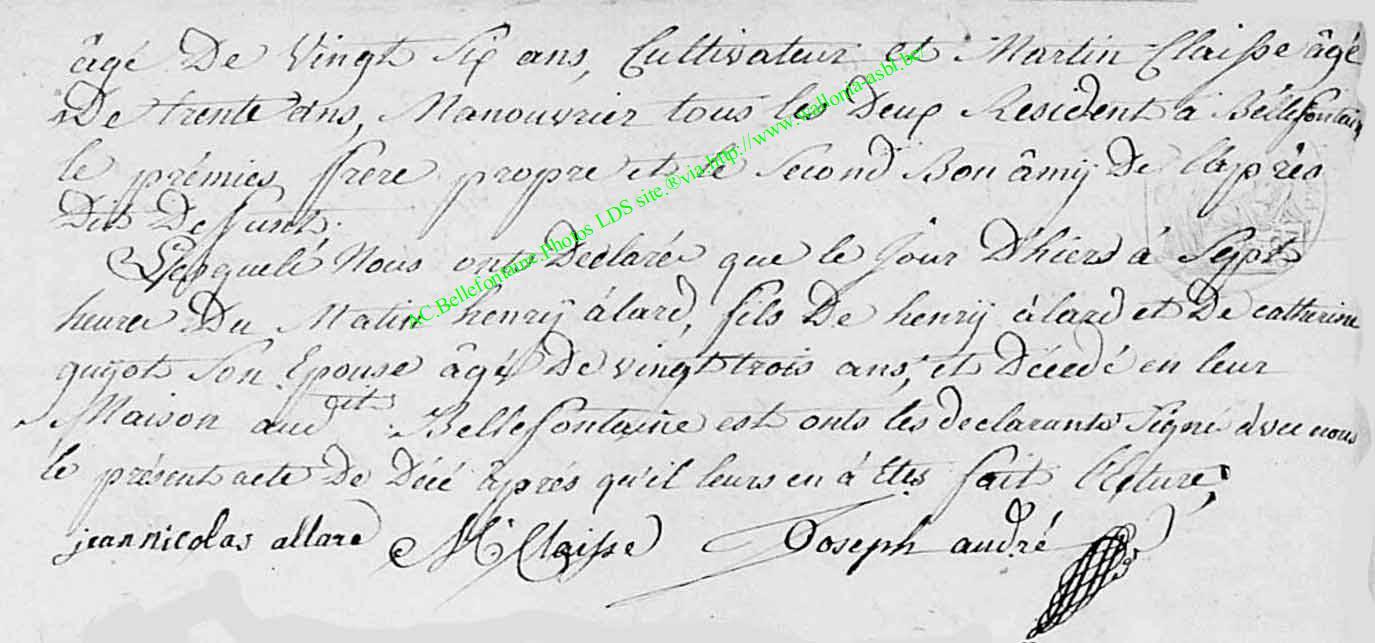 âgé De Vingt Six ans, Cultivateur et Martin Claisse âgé
De trente ans, Manouvrier tous les Deux Resident a Bellefontain
le prémier frére propre et le Second Bon âmij De l'après
Dit Defunt.
Lesquels Nous onts Déclaré que le jour D'hiers à Sept
heures Du Matin henrij àlard, fils De henrij àlard et De catherine
guijot Son Epouse âgé De vingt trois ans, et Décedé en leur
Maison audit Bellefontaine est onts lés declarants Signé avec nous
le présent acte De Décé âprés qu'il leurs en à Etés fait léctures,
jean nicolas allard M Claisse Joseph andré
AC.Bellefontaine.Photos LDS site.®via.http://www.wallonia-asbl.be